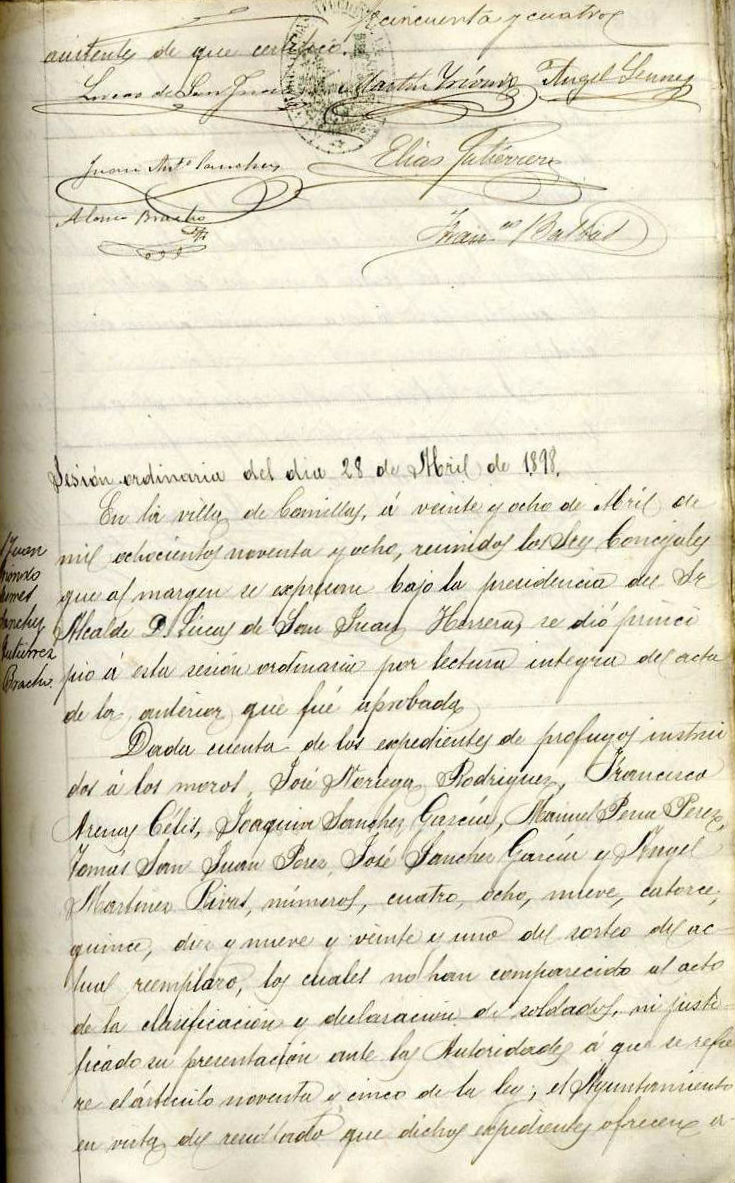 cincuenta y cuatro
asistentes de que certifico.
Lucas de San Juan Martin Angel
Juan Ant.º Sanchez Elias Gutierrez
Alonso Bracho
Fran.co Balbás
Sesión ordinaria del dia 28 de Abril de 1898.
En la villa de Comillas, á veinte y ocho de Abril de
mil ochocientos noventa y ocho, reunidos los Sres Concejales
que al margen se expresan bajo la presidencia del Sr
Alcalde D. Lucas de San Juan Herrera, se dió princi
pio á esta sesión ordinaria por lectura integra del acta
de la anterior que fué aprobada
Juan
Sanchez
Gutierrez
Bracho
Dada cuenta de los expedientes de profugos instrui
dos á los mozos, José Noriega Rodriguez, Francisco
Arenas Célis, Joaquin Sanchez García, Manuel Pena Perez,
Tomás San Juan Perez, José Sanchez García y Angel
Martinez Rivas, números, cuatro, ocho, nueve, catorce,
quince, diez y nueve y veinte y uno del sorteo del ac-
tual reemplazo, los cuales no han comparecido al acto
de la clasificación y declaración de soldados, ni justi-
ficado su presentación ante las Autoridades á que se refie
re el árticulo noventa y cinco de la ley; el Ayuntamiento
en vista del resultado que dichos expedientes ofrecen a-